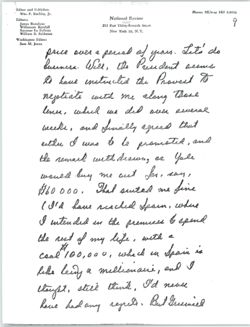 Editor and Publisher
Wm. F. Buckley, Jr.
National Review
New York 16, N. Y.
9
price over a period of years. Let's do
business. Well, the President seems
to have instructed the Provost to
negotiate with me along those
lines, which we did over several
weeks, and finally agreed that
either I was to be promoted, and
the remark withdrawn, or Yale
would buy me out for, say,
$60000. That suited me fine
(I'd have reached Spain, where
I intended in the premises to spend
the rest of my life, with a
cool $100,000, which in Spain is
like being a millionaire, and I
thought, still think, I'd never
have had any regrets. But Griswold